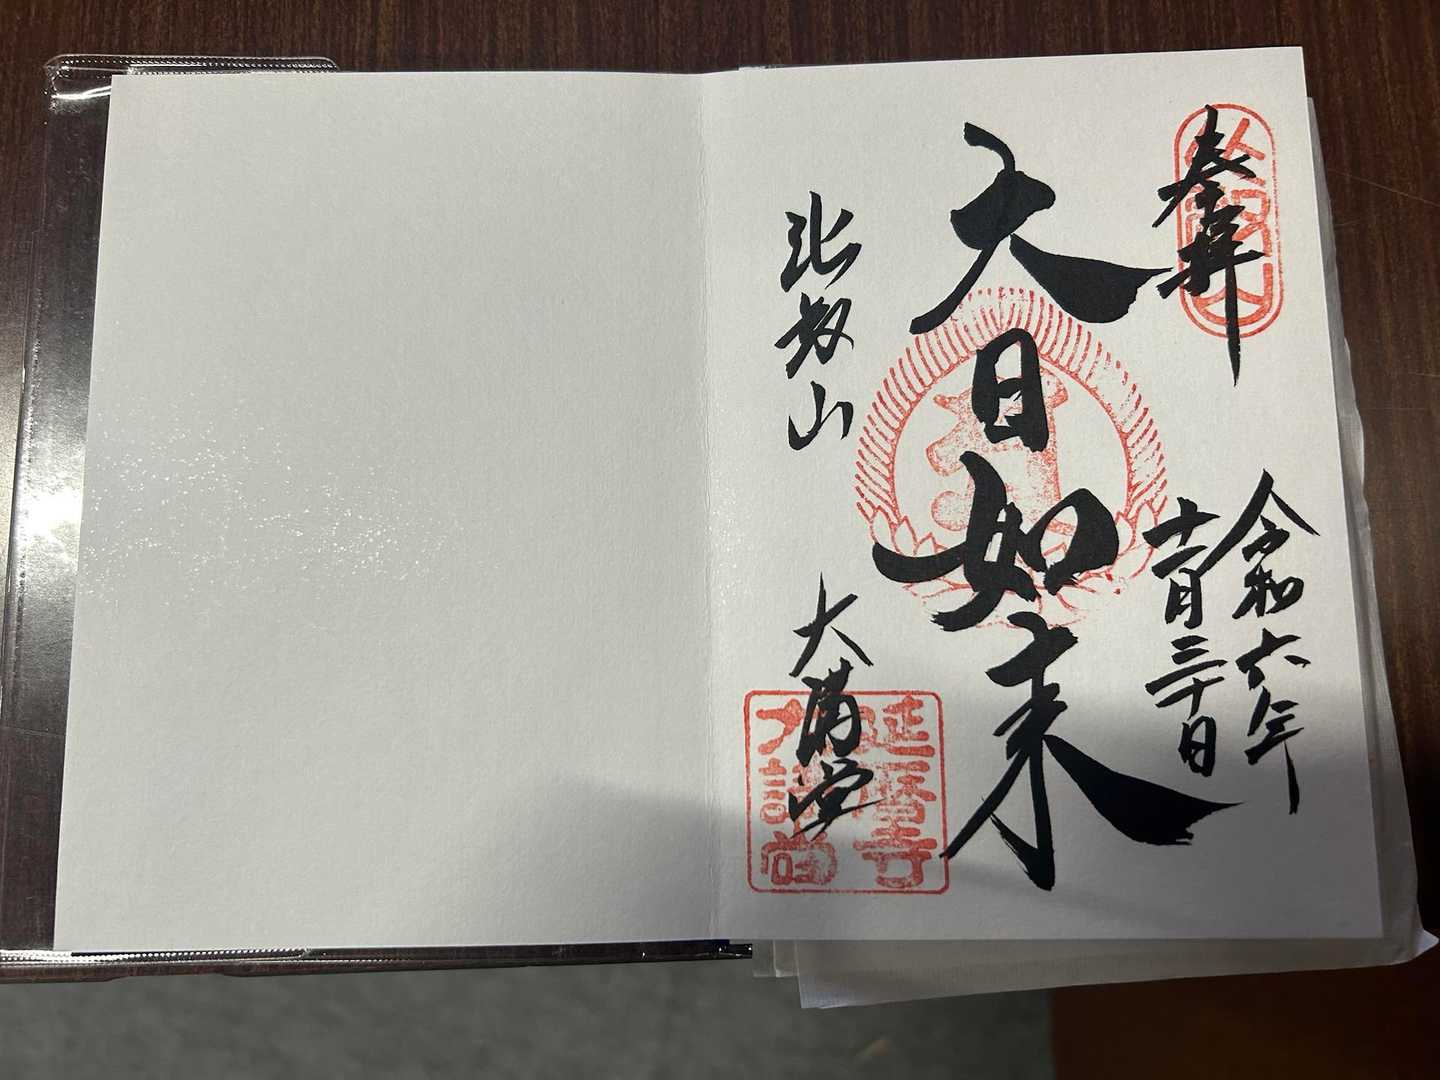 奉拝
比叡山
令和六年
十一月三十日
大日如来
比叡山
大講堂
延暦寺
大講堂